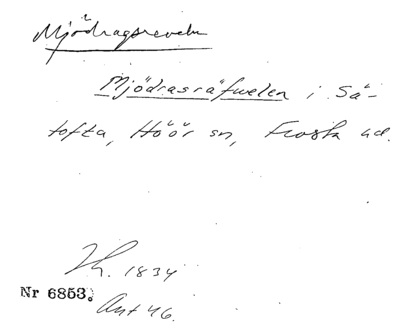 Mjödragsreveln
Mjödrasräfwelen i Sä-
tofta, Höör sn, Frosta hd.
Th. 1834
Nr 6853.
Ant 46.